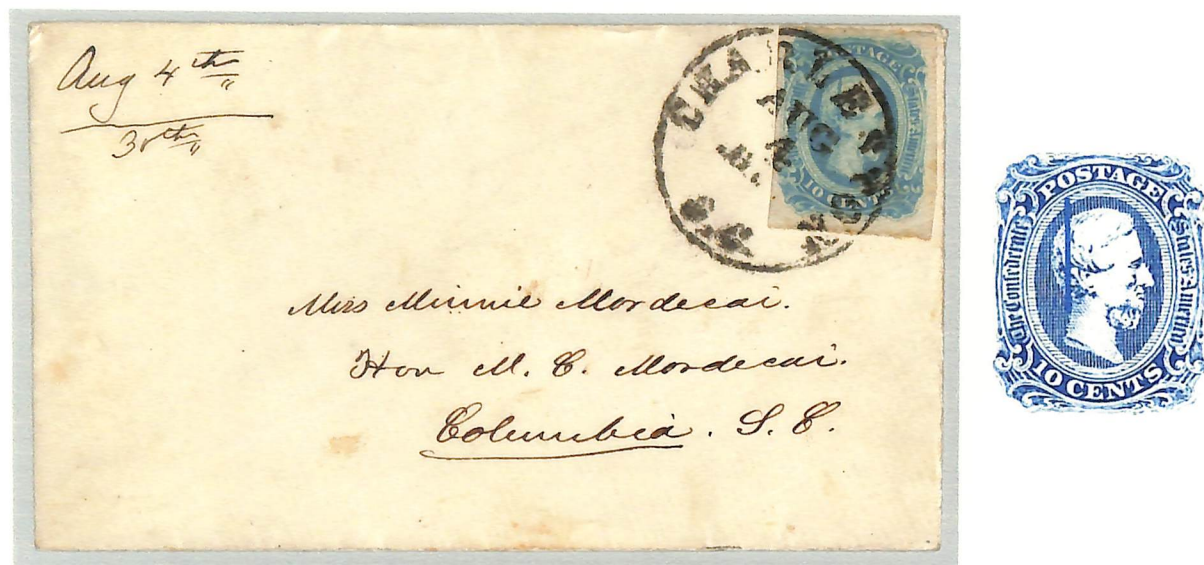 Aug 4th
30th
CHARLESTON
AUG
4
S.C.
POSTAGE
10 CENTS
Miss Minnie Mordecai.
Hon M. C. Mordecai.
Columbia. S. C.
POSTAGE
The Confederate
States of America
10 CENTS